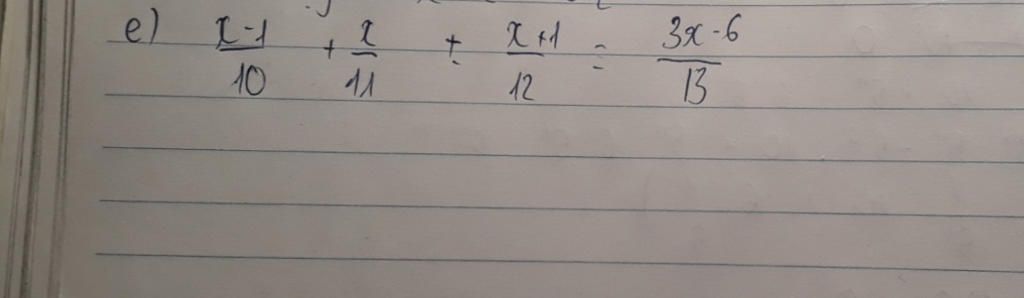 e) x-1/10 + x/11 + x+1/12 = 3x-6/13